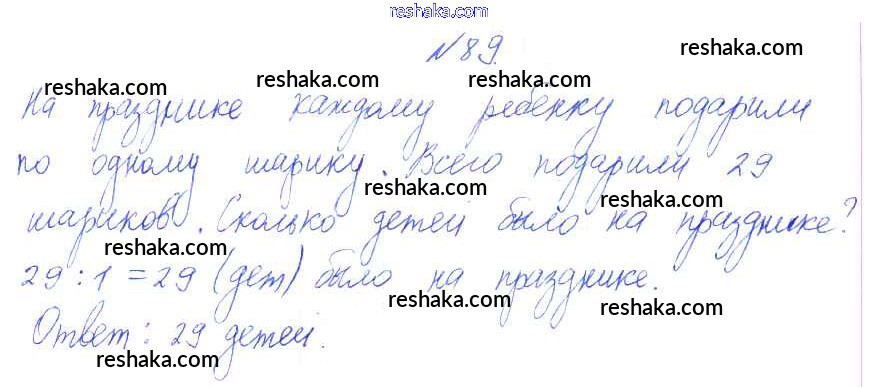 reshaka.com
№89.
reshaka.com
reshaka.com reshaka.com reshaka.com
На празднике каждому ребёнку подарили
reshaka.com
по одному шарику. Всего подарили 29
reshaka.com reshaka.com
шариков. Сколько детей было на празднике?
reshaka.com reshaka.com
29 : 1 = 29 (дет) было на празднике.
reshaka.com reshaka.com
Ответ: 29 детей.
reshaka.com reshaka.com